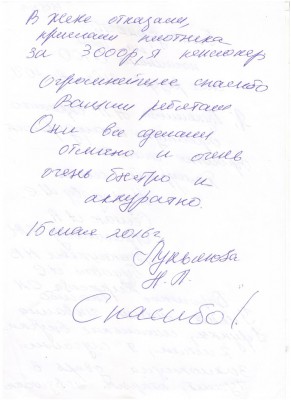 В жеке отказали,
прислали плотника
за 3000р, я пенсионер
огромнейшее спасибо
Вашим ребятам
Они все сделали
отлично и очень
очень быстро и
аккуратно.
15 мая 2016г
Н.П.
Спасибо!